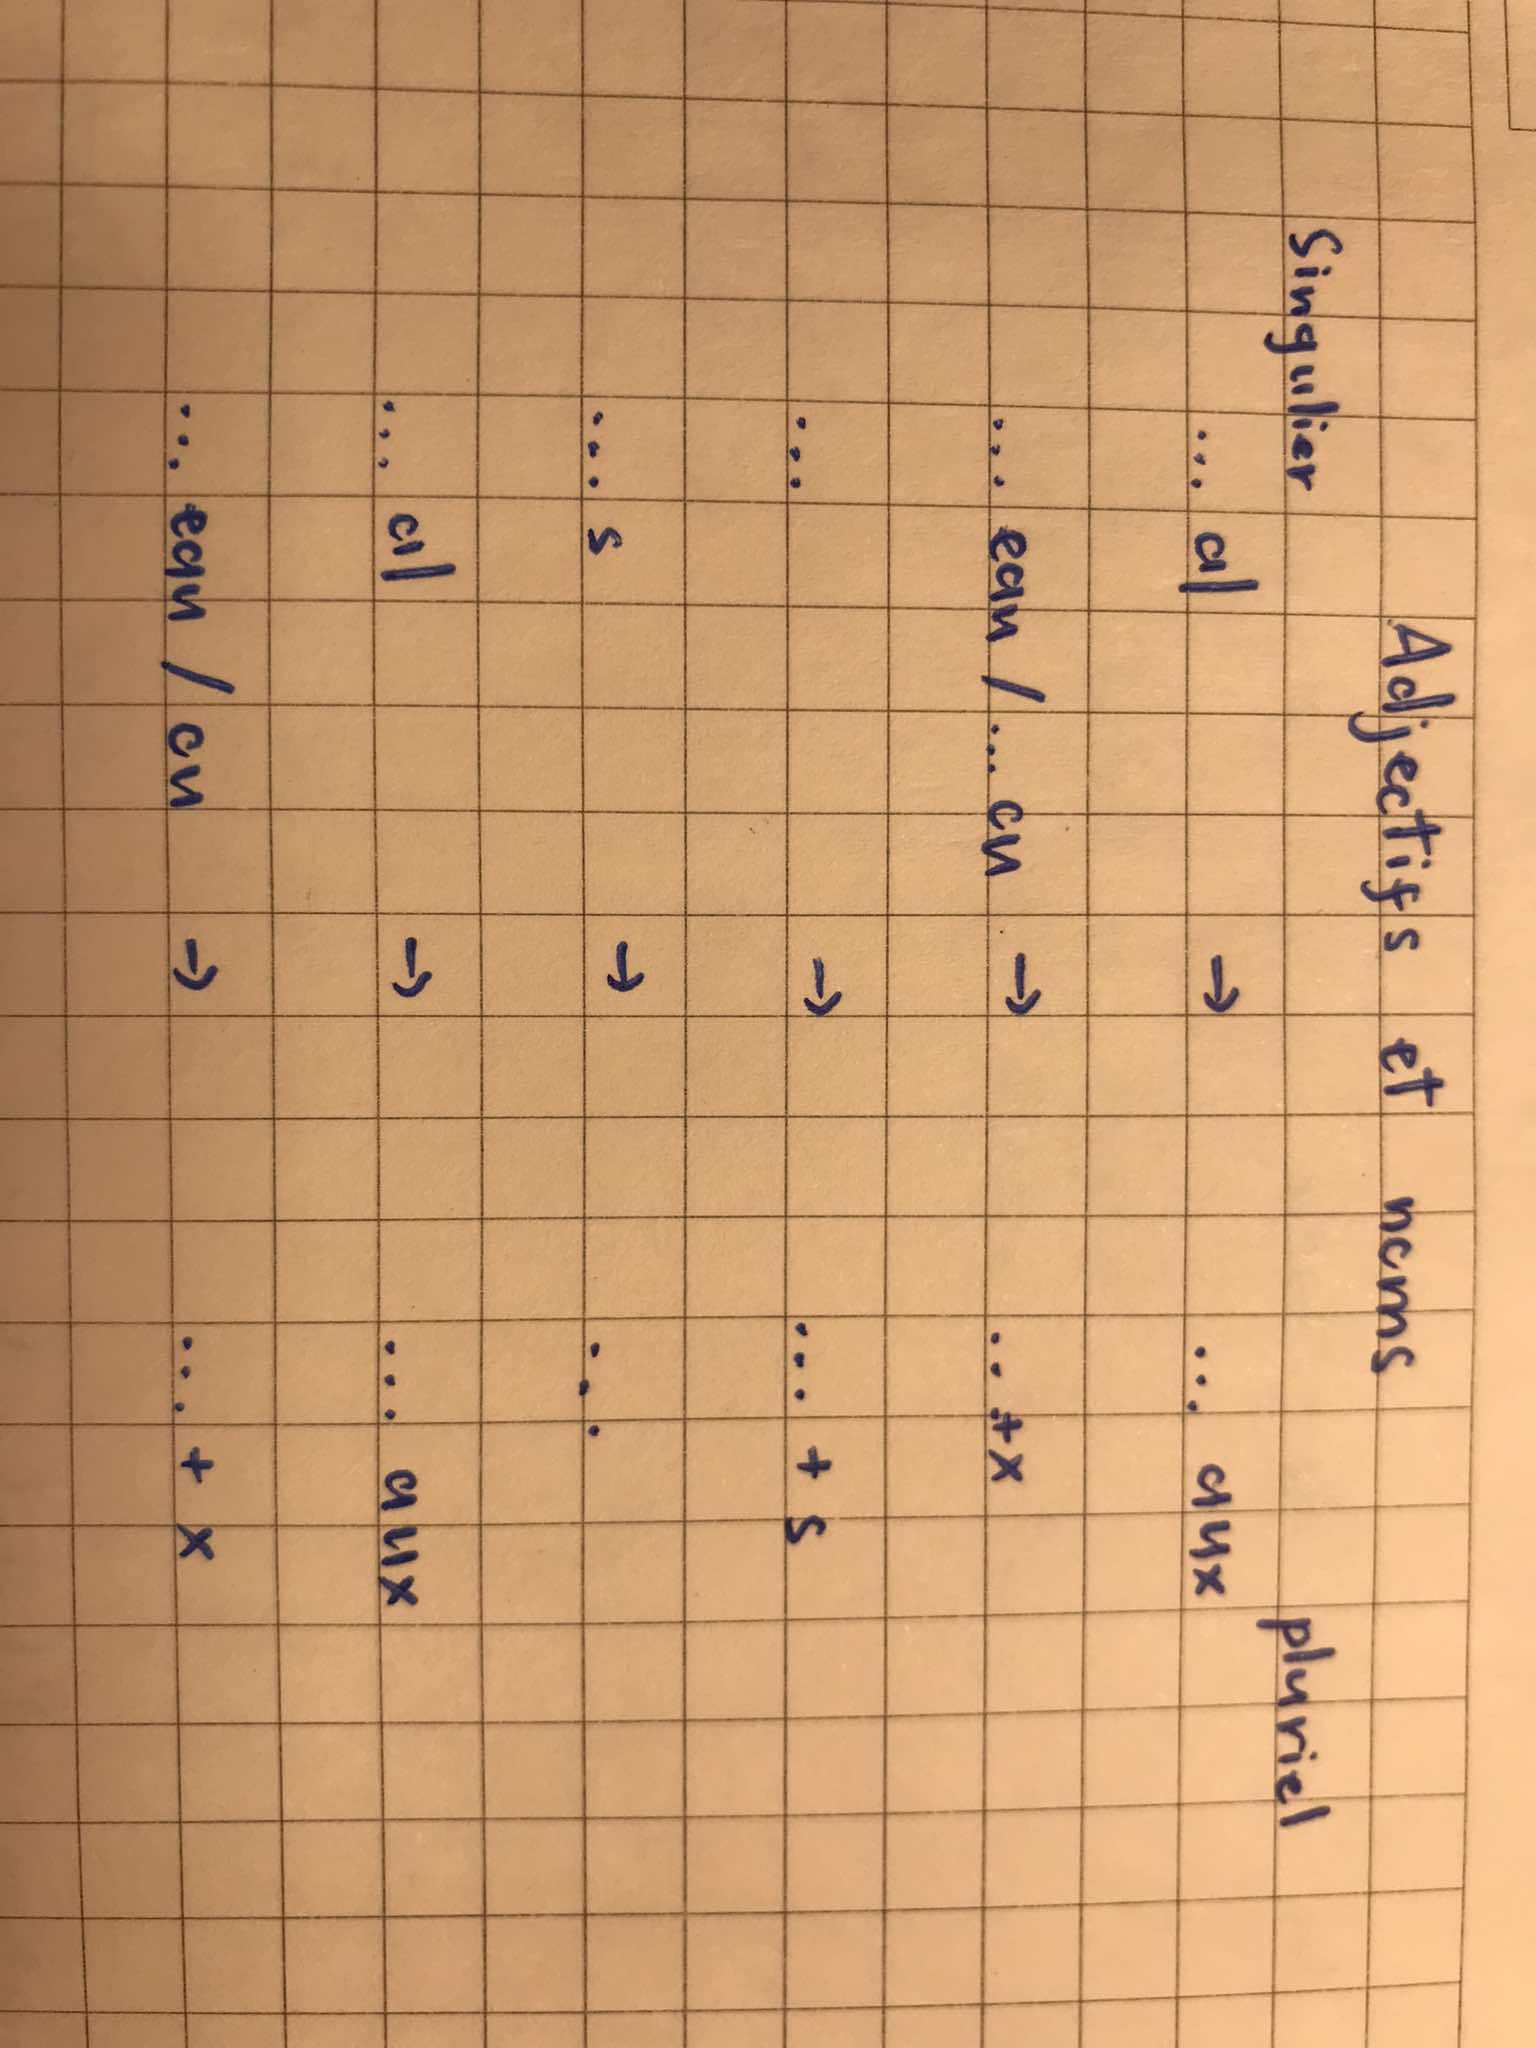 Adjectifs et noms
Singulier pluriel
... al → ... aux
... eau / ... ou → ... +x
... → ... + s
... s → ...
... al → ... aux
... eau / ou → ... + x